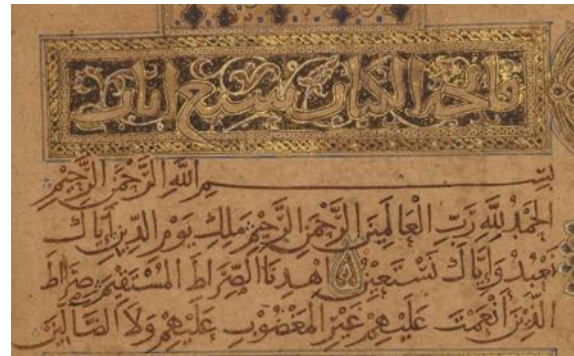 فاتحة الكتاب سبع ايات
بِسْمِ اللهِ الرَّحْمٰنِ الرَّحِيْمِ
الْحَمْدُ لِلّٰهِ رَبِّ الْعَالَمِيْنَ الرَّحْمٰنِ الرَّحِيْمِ مٰلِكِ يَوْمِ الدِّيْنِ اِيَّاكَ
نَعْبُدُ وَاِيَّاكَ نَسْتَعِيْنُ اِهْدِنَا الصِّرَاطَ الْمُسْتَقِيْمَ صِرَاطَ
الَّذِيْنَ اَنْعَمْتَ عَلَيْهِمْ غَيْرِ الْمَغْضُوْبِ عَلَيْهِمْ وَلَا الضَّالِّيْنَ